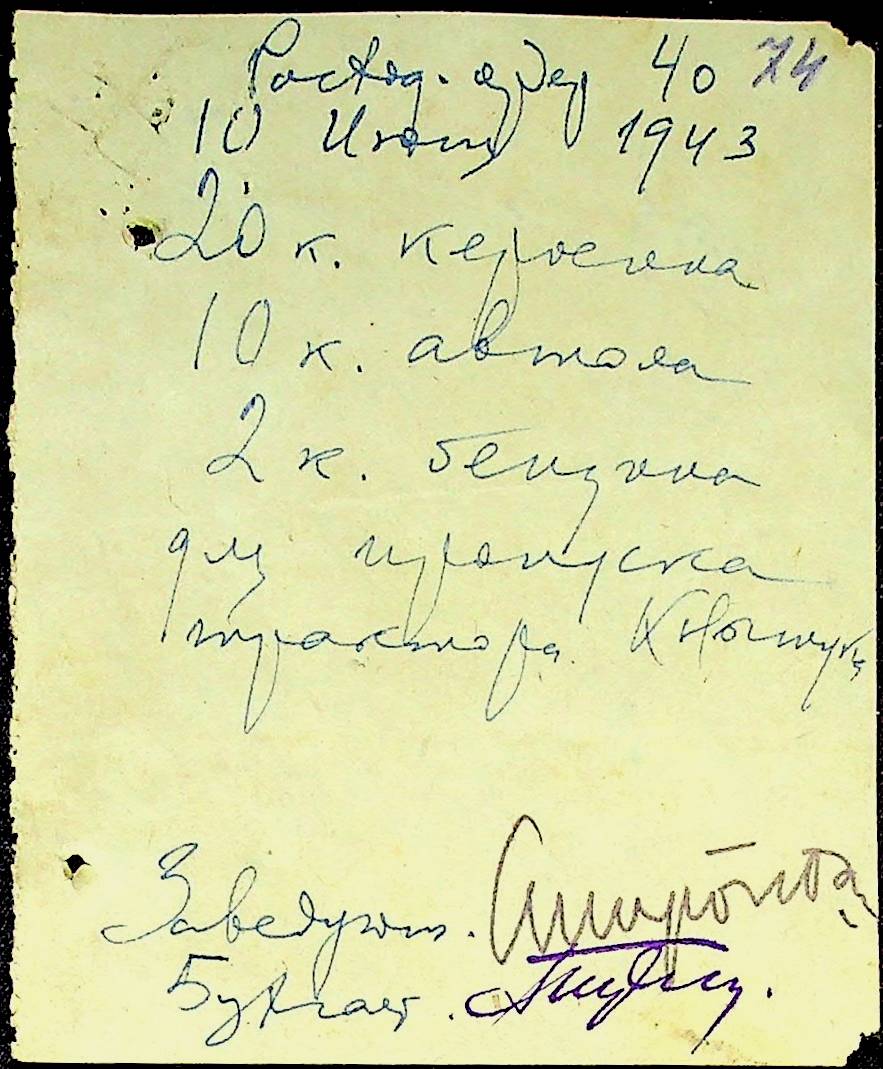 Расход. ордер 40 74
10 Июня 1943
20 к. керосина
10 к. автола
2 к. бензина
для пропуска
трактора
Заведующ.
Бухгалт.